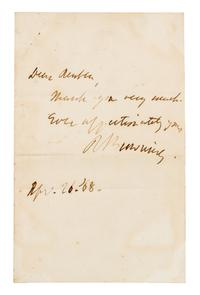 Dear Reuben,
Thank you very much.
Ever affectionately yours
R Browning.
Apr. 26. '68.